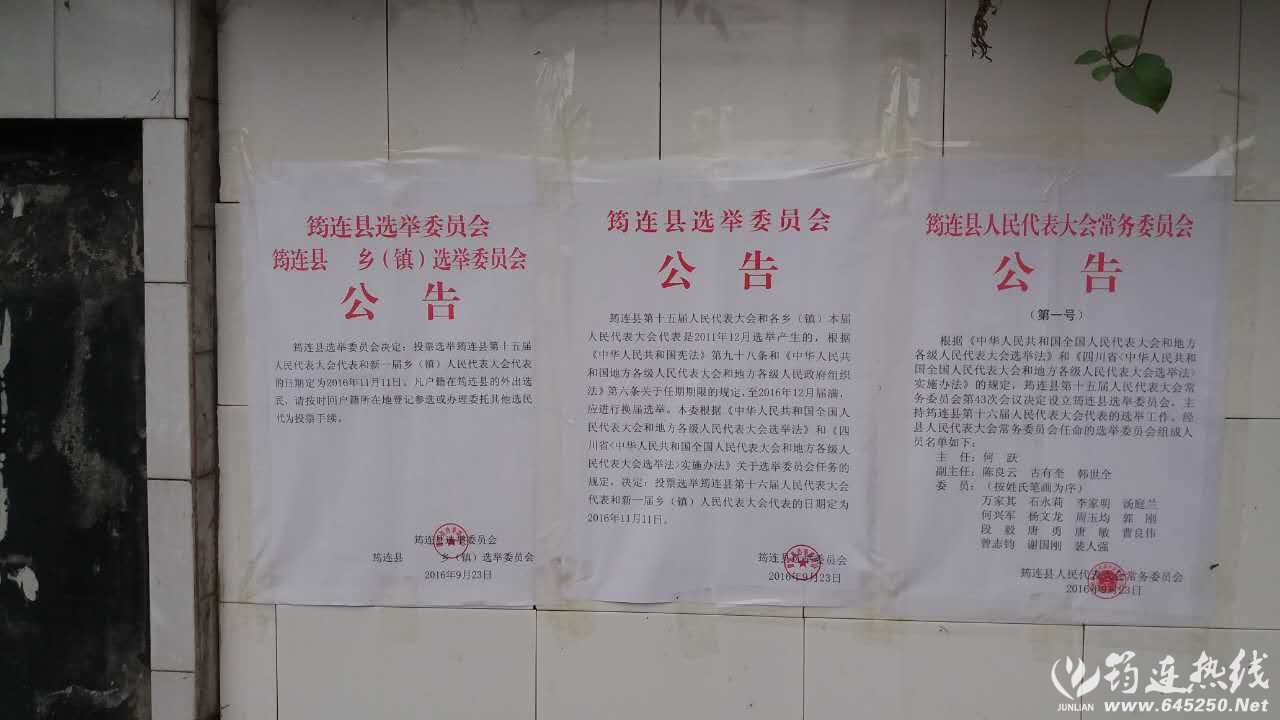 筠连县选举委员会
筠连县 乡（镇）选举委员会
公告
筠连县选举委员会决定：投票选举筠连县第十五届
人民代表大会代表和新一届乡（镇）人民代表大会代表
的日期定为2016年11月11日。凡户籍在筠连县的外出选
民，请按时回户籍所在地登记参选或办理委托其他选民
代为投票手续。
筠连县选举委员会
筠连县 乡（镇）选举委员会
2016年9月23日
筠连县选举委员会
公告
筠连县第十五届人民代表大会和各乡（镇）本届
人民代表大会代表是2011年12月选举产生的，根据
《中华人民共和国宪法》第九十八条和《中华人民共
和国地方各级人民代表大会和地方各级人民政府组织
法》第六条关于任期期限的规定，至2016年12月届满，
应进行换届选举。本委根据《中华人民共和国全国人
民代表大会和地方各级人民代表大会选举法》和《四
川省<中华人民共和国全国人民代表大会和地方各级人
民代表大会选举法>实施办法》关于选举委员会任务的
规定，决定：投票选举筠连县第十六届人民代表大会
代表和新一届乡（镇）人民代表大会代表的日期定为
2016年11月11日。
筠连县选举委员会
2016年9月23日
筠连县人民代表大会常务委员会
公告
（第一号）
根据《中华人民共和国全国人民代表大会和地方
各级人民代表大会选举法》和《四川省<中华人民共和
国全国人民代表大会和地方各级人民代表大会选举法>
实施办法》的规定，筠连县第十五届人民代表大会常
务委员会第43次会议决定设立筠连县选举委员会，主
持筠连县第十六届人民代表大会代表的选举工作。经
县人民代表大会常务委员会任命的选举委员会组成人
员名单如下：
主 任：何 跃
副主任：陈良云 古有奎 韩世全
委 员：（按姓氏笔画为序）
万家其 石永莉 李家明 汤庭兰
何兴军 杨文龙 周玉均 郭 刚
段 毅 唐 勇 唐 敏 曹良伟
曾志钧 谢国刚 裴人强
筠连县人民代表大会常务委员会
2016年9月23日
筠连热线
JUNLIAN www.645250.Net